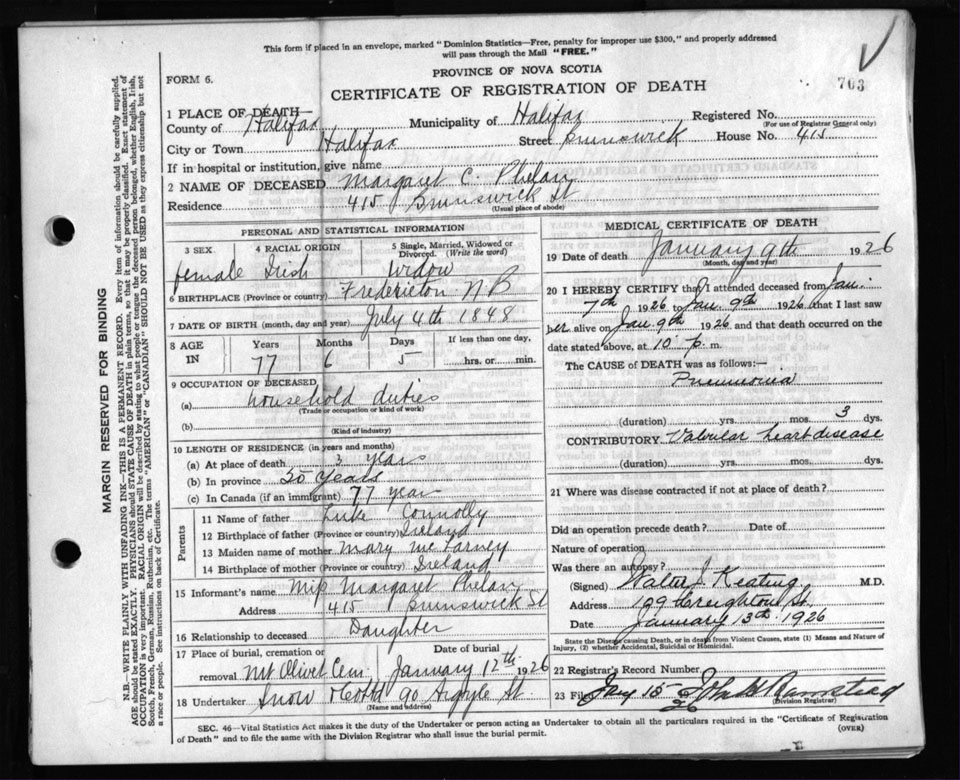 This form if placed in an envelope, marked "Dominion Statistics—Free, penalty for improper use $300," and properly addressed
will pass through the Mail "FREE."
PROVINCE OF NOVA SCOTIA
FORM 6.
CERTIFICATE OF REGISTRATION OF DEATH
703
1 PLACE OF DEATH—
County of Halifax Municipality of Halifax Registered No.
(For use of Registrar General only)
City or Town Halifax Street Brunswick House No. 415
If in hospital or institution, give name
2 NAME OF DECEASED Margaret C. Phelan
Residence 415 Brunswick St
(Usual place of abode)
PERSONAL AND STATISTICAL INFORMATION
3 SEX 4 RACIAL ORIGIN 5 Single, Married, Widowed or Divorced. (Write the word)
female Irish widow
6 BIRTHPLACE (Province or country) Fredericton N B
7 DATE OF BIRTH (month, day and year) July 4th 1848
8 AGE IN Years Months Days If less than one day,
77 6 5 hrs. or min.
9 OCCUPATION OF DECEASED
(a) household duties
(Trade or occupation or kind of work)
(b)
(Kind of industry)
10 LENGTH OF RESIDENCE (in years and months)
(a) At place of death 3 years
(b) In province 50 years
(c) In Canada (if an immigrant) 77 years
Parents
11 Name of father Luke Connolly
12 Birthplace of father (Province or country) Ireland
13 Maiden name of mother Mary
14 Birthplace of mother (Province or country) Ireland
15 Informant's name Miss Margaret Phelan
Address 415 Brunswick St
16 Relationship to deceased Daughter
17 Place of burial, cremation or removal Date of burial
Mt Olivet Cem. January 12th 1926
18 Undertaker Snow 90 Argyle St.
(Name and address)
MEDICAL CERTIFICATE OF DEATH
19 Date of death January 9th 1926
(Month, day and year)
20 I HEREBY CERTIFY that I attended deceased from Jan.
7th 1926 to Jan. 9th 1926 that I last saw
her alive on Jan. 9th 1926 and that death occurred on the
date stated above, at 10 p. m.
The CAUSE of DEATH was as follows:—
Pneumonia
(duration) yrs. mos. 3 dys.
CONTRIBUTORY Valvular heart disease
(duration) yrs. mos. dys.
21 Where was disease contracted if not at place of death?
Did an operation precede death? Date of
Nature of operation
Was there an autopsy?
(Signed) Walter J. Keating M.D.
Address 199 Creighton St.
Date January 13th 1926
State the Disease causing Death, or in death from Violent Causes, state (1) Means and Nature of
Injury, (2) whether Accidental, Suicidal or Homicidal.
22 Registrar's Record Number
23 Filed Jany 15 26
(Division Registrar)
SEC. 46—Vital Statistics Act makes it the duty of the Undertaker or person acting as Undertaker to obtain all the particulars required in the "Certificate of Registration
of Death" and to file the same with the Division Registrar who shall issue the burial permit.
(OVER)
MARGIN RESERVED FOR BINDING
N.B.—WRITE PLAINLY WITH UNFADING INK—THIS IS A PERMANENT RECORD. Every item of information should be carefully supplied.
AGE should be stated EXACTLY. PHYSICIANS should STATE CAUSE OF DEATH in plain terms, so that it may be properly classified. Exact statement of
OCCUPATION is very important. RACIAL ORIGIN will be described by stating to what people or tongue the deceased person belonged, whether English, Irish,
Scotch, French, German, Russian, Ruthenian, etc. The terms "AMERICAN" or "CANADIAN" SHOULD NOT BE USED as they express citizenship but not
a race or people. See instructions on back of Certificate.